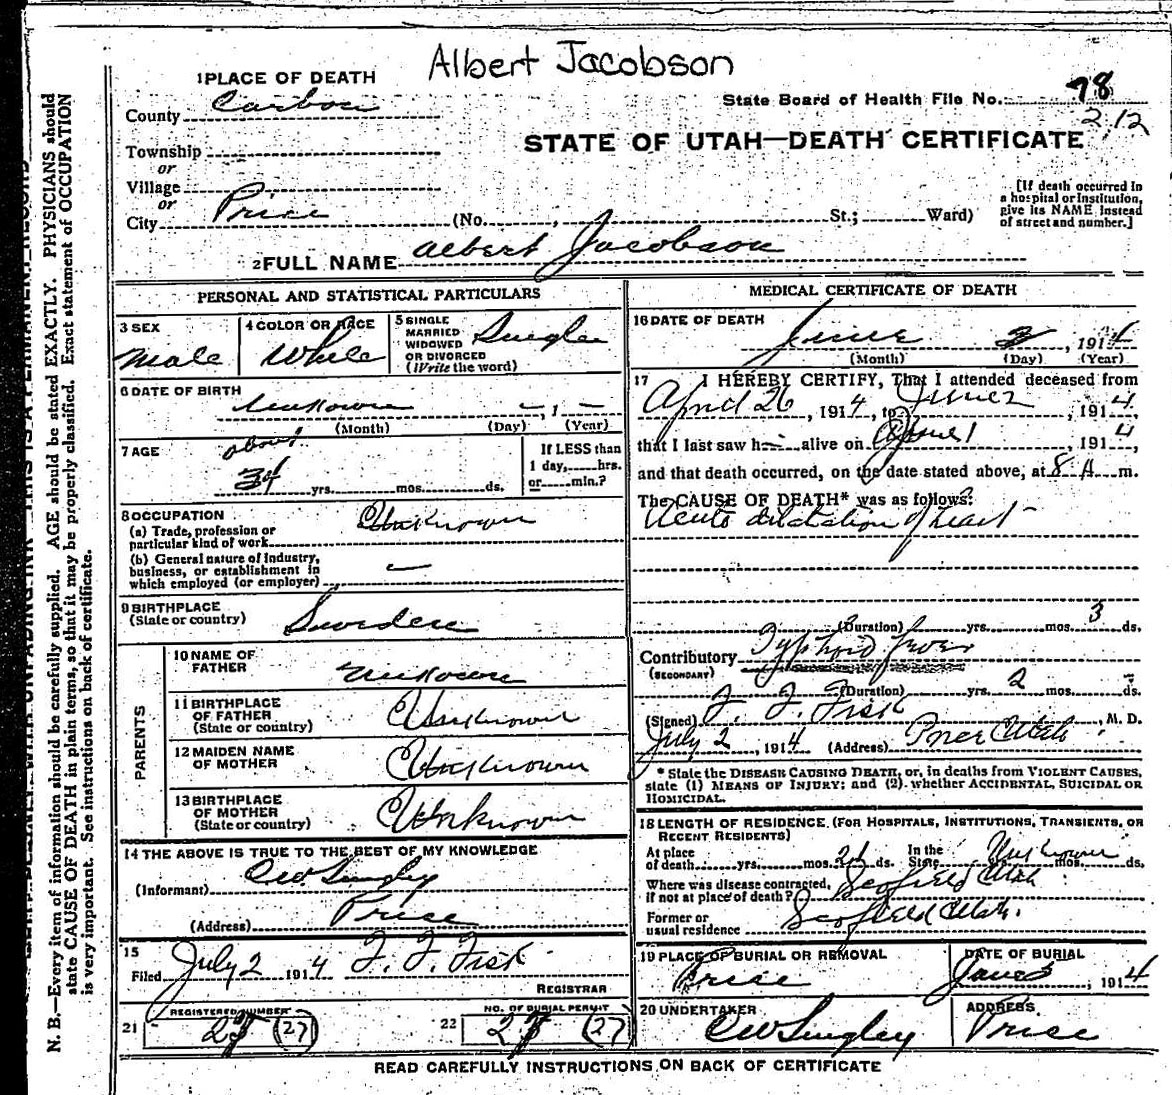 Albert Jacobson
1 PLACE OF DEATH
County Carbon
State Board of Health File No. 78
2,12
STATE OF UTAH—DEATH CERTIFICATE
Township
or
Village
or
City Price (No. , St.; Ward)
[If death occurred in a hospital or institution, give its NAME instead of street and number.]
2 FULL NAME Albert Jacobson
PERSONAL AND STATISTICAL PARTICULARS
3 SEX
Male
4 COLOR OR RACE
White
5 SINGLE MARRIED WIDOWED OR DIVORCED (Write the word)
Single
6 DATE OF BIRTH
Unknown — , 1 —
(Month) (Day) (Year)
7 AGE
about
34 yrs. mos. ds.
If LESS than 1 day, hrs. or min.?
8 OCCUPATION
(a) Trade, profession or particular kind of work Unknown
(b) General nature of industry, business, or establishment in which employed (or employer) —
9 BIRTHPLACE
(State or country) Sweden
PARENTS
10 NAME OF FATHER Unknown
11 BIRTHPLACE OF FATHER (State or country) Unknown
12 MAIDEN NAME OF MOTHER Unknown
13 BIRTHPLACE OF MOTHER (State or country) Unknown
14 THE ABOVE IS TRUE TO THE BEST OF MY KNOWLEDGE
(Informant) CW Singley
(Address) Price
15
Filed July 2 1914 F. F. Fisk
REGISTRAR
REGISTERED NUMBER
21 (27)
NO. OF BURIAL PERMIT
22 (27)
MEDICAL CERTIFICATE OF DEATH
16 DATE OF DEATH
June 3, 1914
(Month) (Day) (Year)
17 I HEREBY CERTIFY, That I attended deceased from
April 26, 1914, to June 2, 1914,
that I last saw h alive on June 1, 1914,
and that death occurred, on the date stated above, at 8 A m.
The CAUSE OF DEATH* was as follows:
Acute dilatation of heart
(Duration) yrs. mos. 3 ds.
Contributory Typhoid fever
(SECONDARY)
(Duration) yrs. 2 mos. — ds.
(Signed) F. F. Fisk, M. D.
July 2, 1914 (Address) Price Utah
* State the DISEASE CAUSING DEATH, or, in deaths from VIOLENT CAUSES,
state (1) MEANS OF INJURY; and (2) whether ACCIDENTAL, SUICIDAL OR
HOMICIDAL.
18 LENGTH OF RESIDENCE (FOR HOSPITALS, INSTITUTIONS, TRANSIENTS, OR
RECENT RESIDENTS)
At place of death yrs. mos. ds. In the State Unknown yrs. mos. ds.
Where was disease contracted, if not at place of death? Scofield Utah
Former or usual residence Scofield Utah.
19 PLACE OF BURIAL OR REMOVAL
Price
DATE OF BURIAL
June 3, 1914
20 UNDERTAKER
CW Singley
ADDRESS
Price
READ CAREFULLY INSTRUCTIONS ON BACK OF CERTIFICATE
N. B.—Every item of information should be carefully supplied. AGE should be stated EXACTLY. PHYSICIANS should
state CAUSE OF DEATH in plain terms, so that it may be properly classified. Exact statement of OCCUPATION
is very important. See instructions on back of certificate.